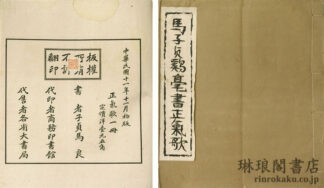 馬子貞鷄毫書正氣歌
中華民國十一年十二月初版
正氣歌一冊
定價洋壹元五角
書者子貞馬良
代印者商務印書館
代售者各省大書局
板權所有
不許翻印
琳琅閣書店
rinrokaku.co.jp